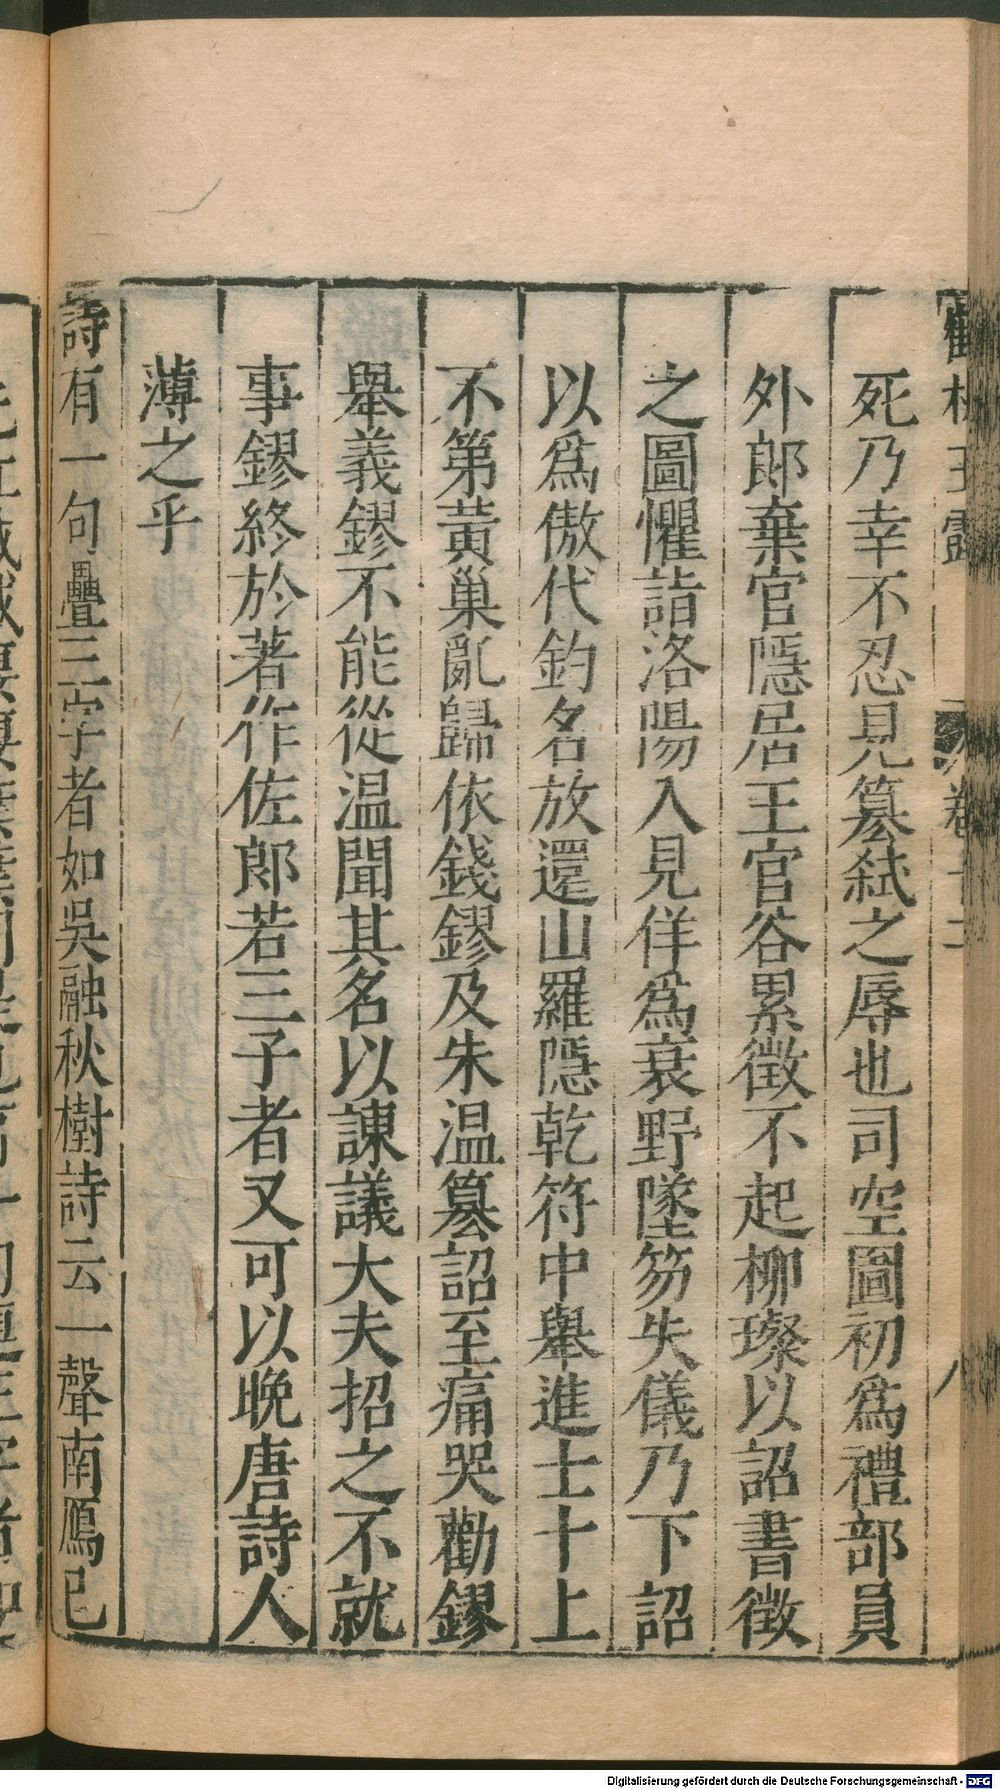 死乃幸不忍見篡弑之辱也司空圖初爲禮部員
外郎棄官隱居王官谷累徵不起柳璨以詔書徵
之圖懼詣洛陽入見佯爲衰野墜笏失儀乃下詔
以爲傲代釣名放還山羅隱乾符中舉進士十上
不第黃巢亂歸依錢鏐及朱温篡詔至痛哭勸鏐
舉義鏐不能從温聞其名以諫議大夫招之不就
事鏐終於著作佐郎若三子者又可以晚唐詩人
薄之乎
詩有一句疊三字者如吳融秋樹詩云一聲南鴈已
Digitalisierung gefördert durch die Deutsche Forschungsgemeinschaft - DFG